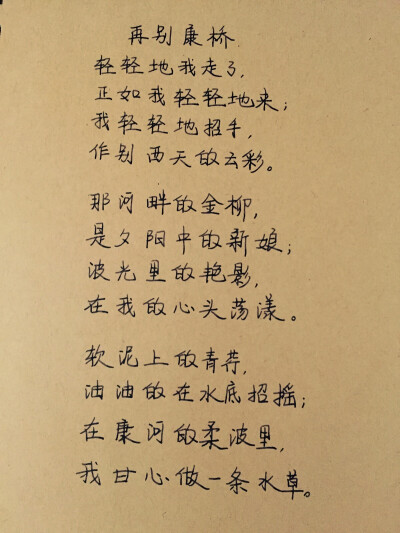 再别康桥
轻轻地我走了,
正如我轻轻地来;
我轻轻地招手,
作别西天的云彩。
那河畔的金柳,
是夕阳中的新娘;
波光里的艳影,
在我的心头荡漾。
软泥上的青荇,
油油的在水底招摇;
在康河的柔波里,
我甘心做一条水草。